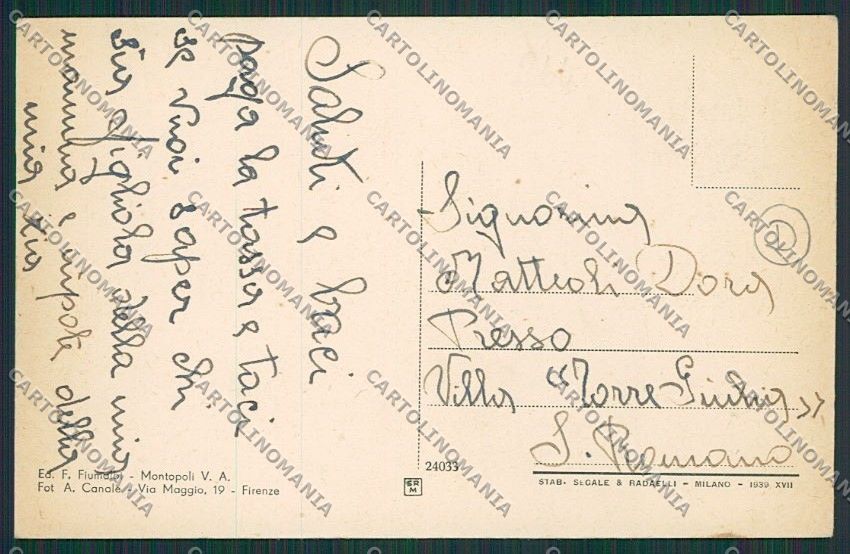 Saluti e baci
paga la tassa e taci
se vuoi saper chi
sia figliola della mia
mamma e nipote della
mia zia
Signorina
Matteoli Dora
Presso
Villa "Torre Giulia"
S. Romano
D
Ed. F. Fiumalbi - Montopoli V. A.
Fot A. Canale - Via Maggio, 19 - Firenze
24033
SR
M
STAB. SEGALE & RADAELLI - MILANO - 1939 XVII
CARTOLINOMANIA